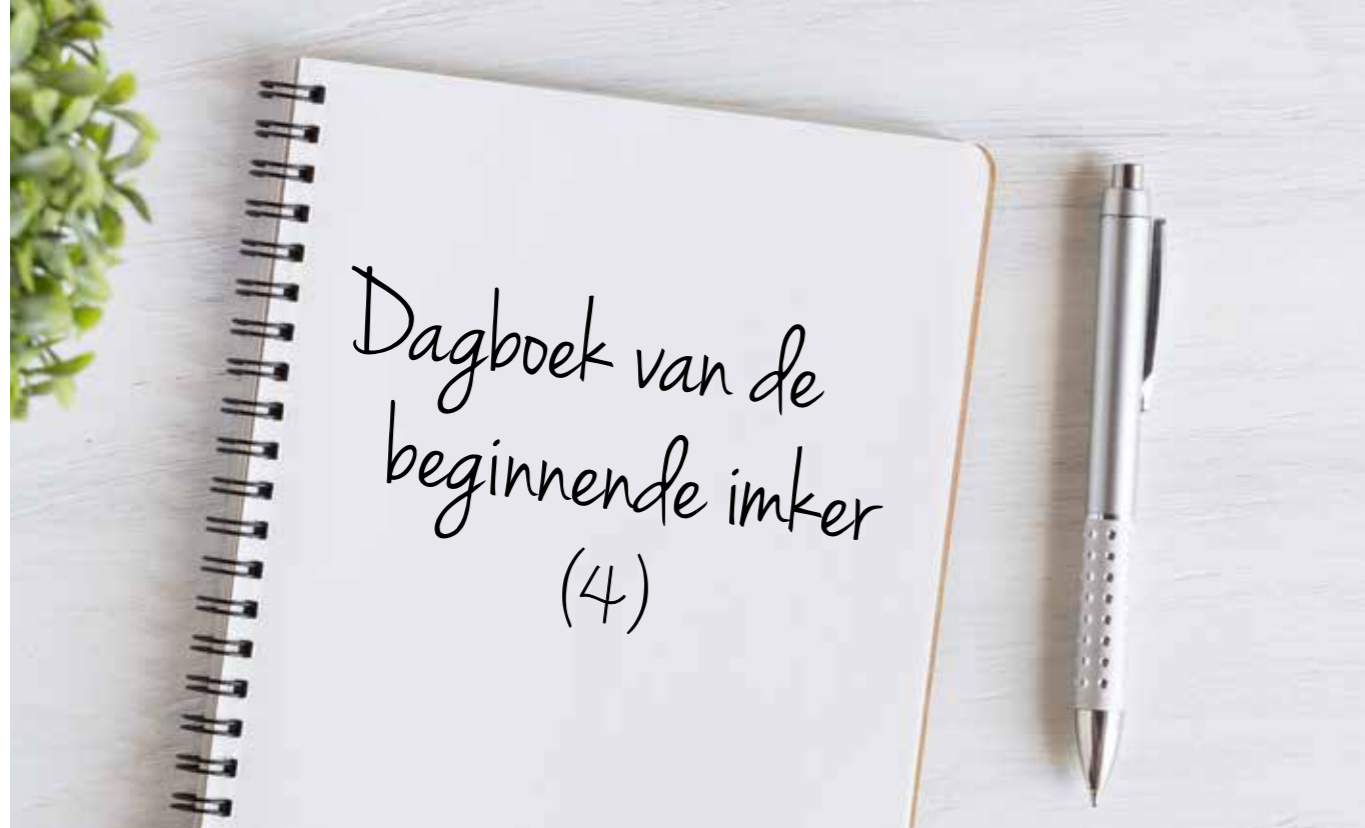 Dagboek van de
beginnende imker
(4)